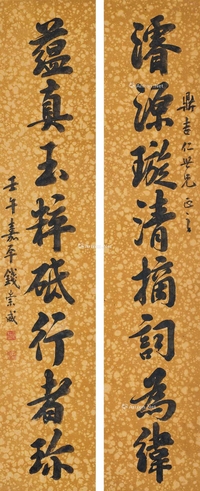 濬源璇清摘詞為緯
鼎吉仁世兄正之
蘊真玉粹砥行者珍
壬午嘉平錢崇威